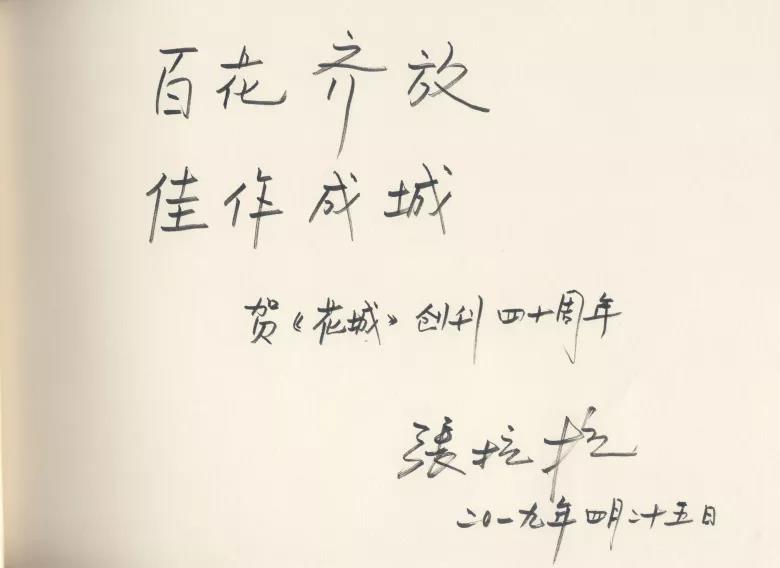 百花齐放
佳作成城
贺《花城》创刊四十周年
張抗抗
二〇一九年四月二十五日